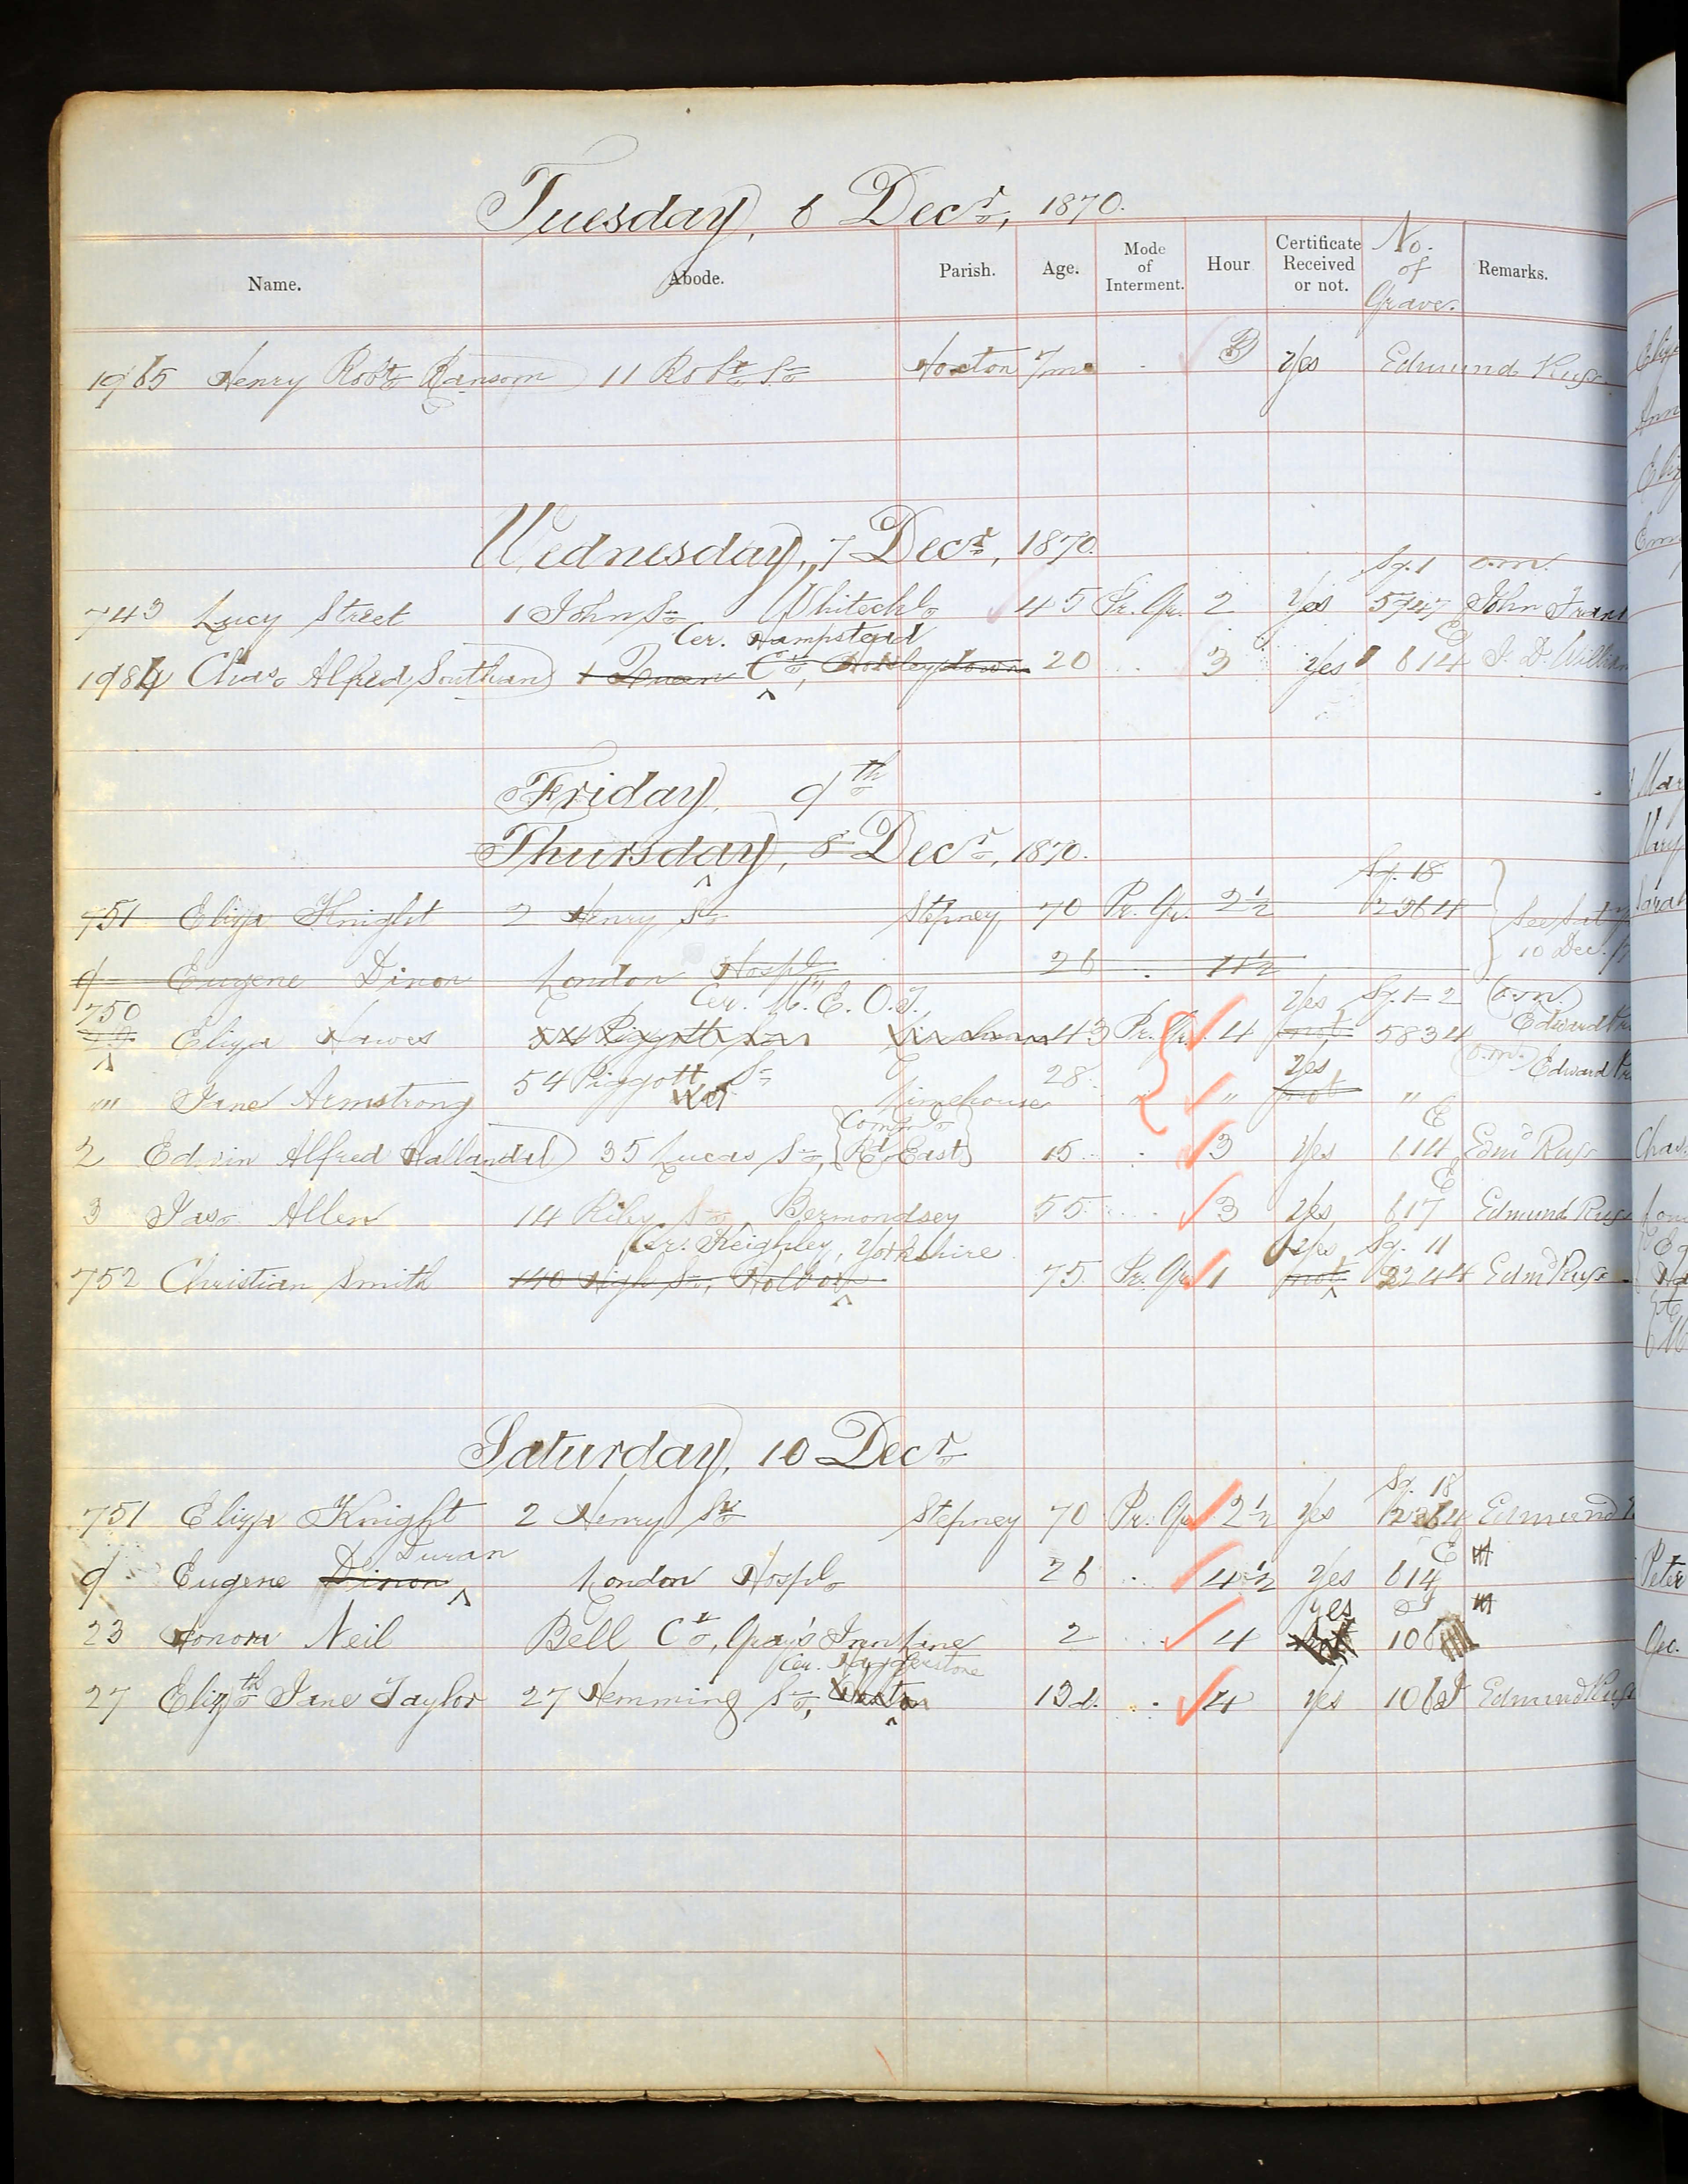 Tuesday, 6 Decr, 1870.
Name. Abode. Parish. Age. Mode of Interment. Hour Certificate Received or not. No. of Grave. Remarks.
1965 Henry Robt Ransom 11 Robt St Hoxton 7/m Yes Edmund
Wednesday, 7 Decr, 1870.
Sq. 1 o.m.
743 Lucy Street 1 John St Whitechl 45 Pr. Gr. 2 Yes 5747 John
Cer. Hampstead E
1984 Chas Alfred Southan 1 Queen Ct, Horsleydown 20 3 Yes 614 J. D.
Friday, 9th
Thursday, 8 Decr, 1870.
Sq. 18
751 Eliza Knight 2 Henry St Stepney 70 Pr. Gr. 2½ 12364 See Sat
9 Eugene Dinon London Hospl 26 4½ 10 Dec.
Cer. M. E. O. T. Yes Sq. 1=2 (o.m.)
750 Eliza Hawes 54 Piggott Limehouse 43 Pr. Gr. 4 not 5834 Edward
Yes (o.m.)
"" Jane Armstrong 54 Piggott St Limehouse 28 " " not " Edward
Comml E
2 Edwin Alfred Hallandal 35 Lucas St, Rd East 15 3 Yes 114 Edmd
E
3 Jas Allen 14 Riley St, Bermondsey 55 3 Yes 617 Edmund
Cer. Keighley, Yorkshire Yes Sq. 11
752 Christian Smith 140 High St, Holborn 75 Pr. Gr. 1 not 2244 Edmd
Saturday, 10 Decr
Sq. 18
751 Eliza Knight 2 Henry St Stepney 70 Pr. Gr. 2½ Yes 12364 Edmund
Duran E
9 Eugene Dinon London Hospl 26 4½ Yes 614
yes
23 Honora Neil Bell Ct, Gray's Inn Lane 2 4 not 106
Cer. Haggerstone
27 Elizth Jane Taylor 27 Hemming St, Hoxton 13d. 4 Yes 106 Edmund